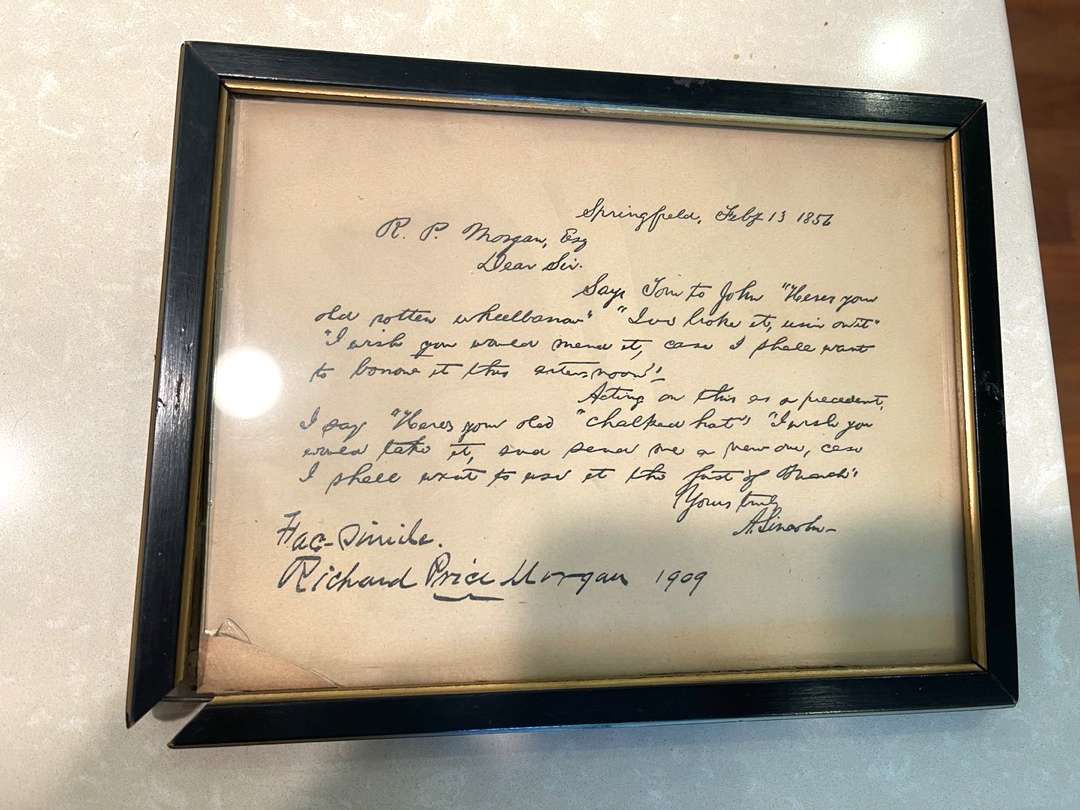 Springfield, Feby 13 1856
R. P. Morgan, Esq
Dear Sir.
Says Tom to John "Heres your
old rotten wheelbarrow" "I've broke it, usin on it"
"I wish you would mend it, case I shall want
to borrow it this arternoon"
Acting on this as a precedent,
I say "Heres your old "chalked hat" "I wish you
would take it, and send me a new one, case
I shall want to use it the first of March"
Yours truly
A. Lincoln—
Fac-Simile.
Richard Price Morgan 1909